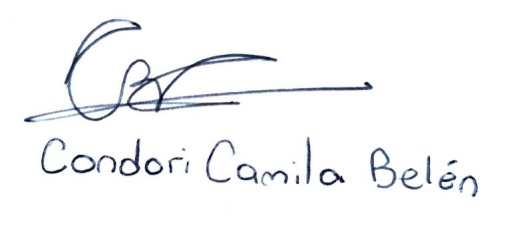 Condori Camila Belén